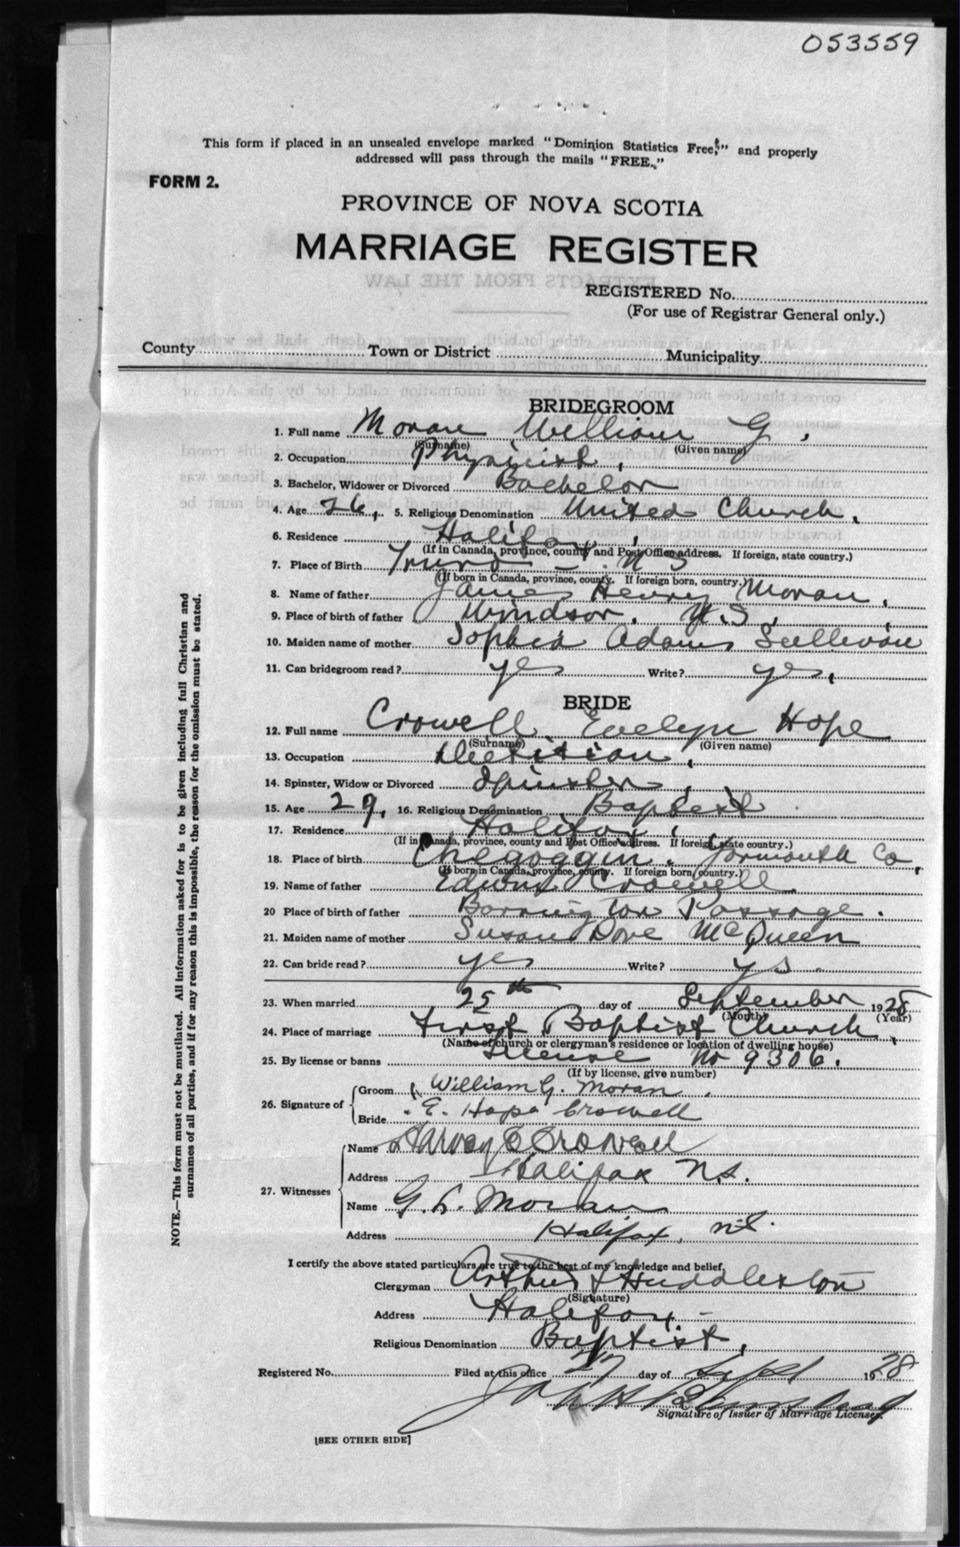 053559
This form if placed in an unsealed envelope marked "Dominion Statistics Free," and properly
addressed will pass through the mails "FREE."
FORM 2.
PROVINCE OF NOVA SCOTIA
MARRIAGE REGISTER
REGISTERED No.
(For use of Registrar General only.)
County Town or District Municipality
BRIDEGROOM
1. Full name Moran William G.
(Surname) (Given name)
2. Occupation
3. Bachelor, Widower or Divorced Bachelor
4. Age 26, 5. Religious Denomination United Church.
6. Residence Halifax,
(If in Canada, province, county and Post Office address. If foreign, state country.)
7. Place of Birth Truro - N S
(If born in Canada, province, county. If foreign born, country.)
8. Name of father James Henry Moran,
9. Place of birth of father Windsor, N.S.
10. Maiden name of mother Sophia Adams Sullivan
11. Can bridegroom read? yes Write? yes,
BRIDE
12. Full name Crowell Evelyn Hope
(Surname) (Given name)
13. Occupation Dietitian,
14. Spinster, Widow or Divorced Spinster,
15. Age 29, 16. Religious Denomination Baptist
17. Residence Halifax,
(If in Canada, province, county and Post Office address. If foreign, state country.)
18. Place of birth Chegoggin. Yarmouth Co,
(If born in Canada, province, county. If foreign born, country.)
19. Name of father Edwin Crowell
20 Place of birth of father Barrington Passage.
21. Maiden name of mother Susan Dove McQueen
22. Can bride read? yes Write? ys.
23. When married 25th day of September 1928
(Month) (Year)
24. Place of marriage First Baptist Church,
(Name of church or clergyman's residence or location of dwelling house)
25. By license or banns License No 9306.
(If by license, give number)
26. Signature of
Groom William G. Moran.
Bride E. Hope Crowell
27. Witnesses
Name Harvey Crowell
Address Halifax N.S.
Name G. L. Moran
Address Halifax, N.S.
I certify the above stated particulars are true to the best of my knowledge and belief,
Clergyman Arthur Huddleston
(Signature)
Address Halifax -
Religious Denomination Baptist,
Registered No. Filed at this office 27 day of Sept 1928
Signature of Issuer of Marriage Licenses.
[SEE OTHER SIDE]
NOTE.—This form must not be mutilated. All information asked for is to be given including full Christian and
surnames of all parties, and if for any reason this is impossible, the reason for the omission must be stated.
EXTRACTS FROM THE LAW